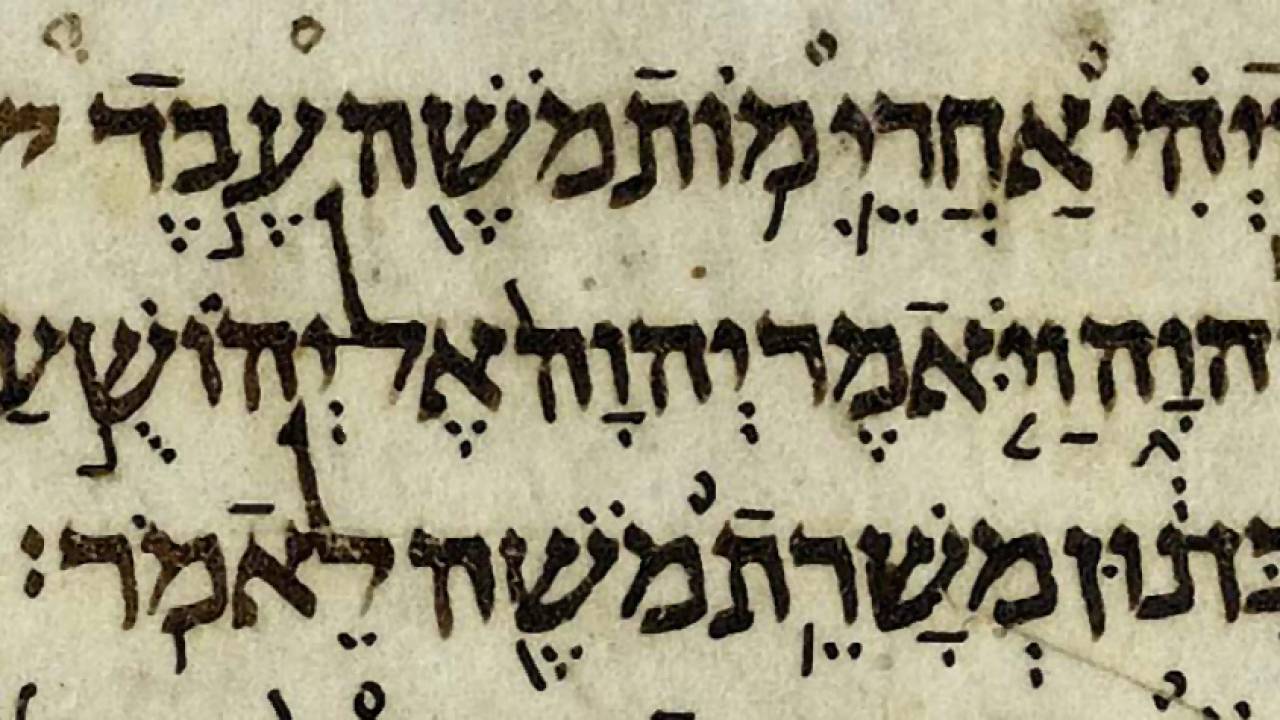 יְהִי אַחֲרֵי מוֹת מֹשֶׁה עֶבֶד
הוָה וַיֹּאמֶר יְהוָה אֶל יְהוֹשֻׁעַ
נוּן מְשָׁרֵת מֹשֶׁה לֵאמֹר׃